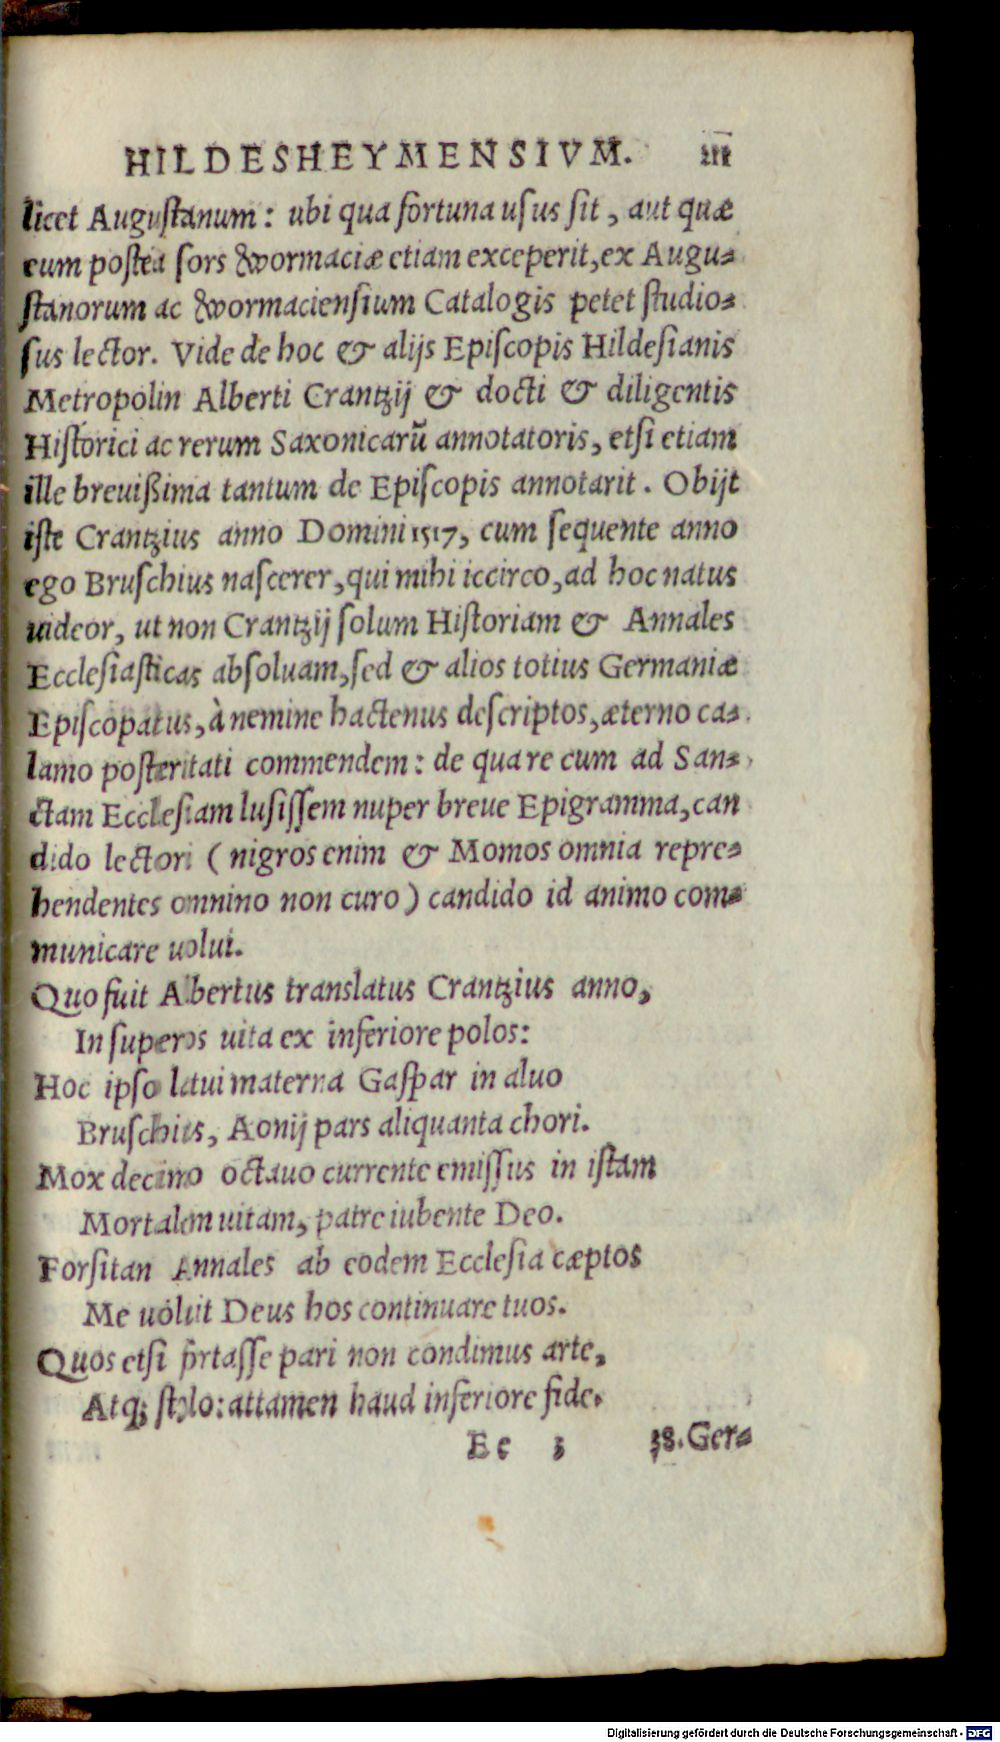 HILDESHEYMENSIVM. III
licet Augustanum: ubi qua fortuna usus sit, aut quæ
eum postea sors &wormaciæ etiam exceperit, ex Augu-
stanorum ac &wormaciensium Catalogis petet studio-
sus lector. Vide de hoc & alijs Episcopis Hildesianis
Metropolin Alberti Crantzij & docti & diligentis
Historici ac rerum Saxonicarũ annotatoris, etsi etiam
ille breuißima tantum de Episcopis annotarit. Obijt
iste Crantzius anno Domini 1517, cum sequente anno
ego Bruschius nascerer, qui mihi iccirco, ad hoc natus
uideor, ut non Crantzij solum Historiam & Annales
Ecclesiasticas absoluam, sed & alios totius Germaniæ
Episcopatus, à nemine hactenus descriptos, æterno ca-
lamo posteritati commendem: de qua re cum ad San-
ctam Ecclesiam lusissem nuper breue Epigramma, can
dido lectori (nigros enim & Momos omnia repre-
hendentes omnino non curo) candido id animo com-
municare uolui.
Quo fuit Albertus translatus Crantzius anno,
In superos uita ex inferiore polos:
Hoc ipso latui materna Gaspar in aluo
Bruschius, Aonij pars aliquanta chori.
Mox decimo octauo currente emissus in istam
Mortalem uitam, patre iubente Deo.
Forsitan Annales ab eodem Ecclesia cæptos
Me uoluit Deus hos continuare tuos.
Quos etsi fortasse pari non condimus arte,
Atq; stylo: attamen haud inferiore fide.
Ee 3 38. Ger-
Digitalisierung gefördert durch die Deutsche Forschungsgemeinschaft - DFG